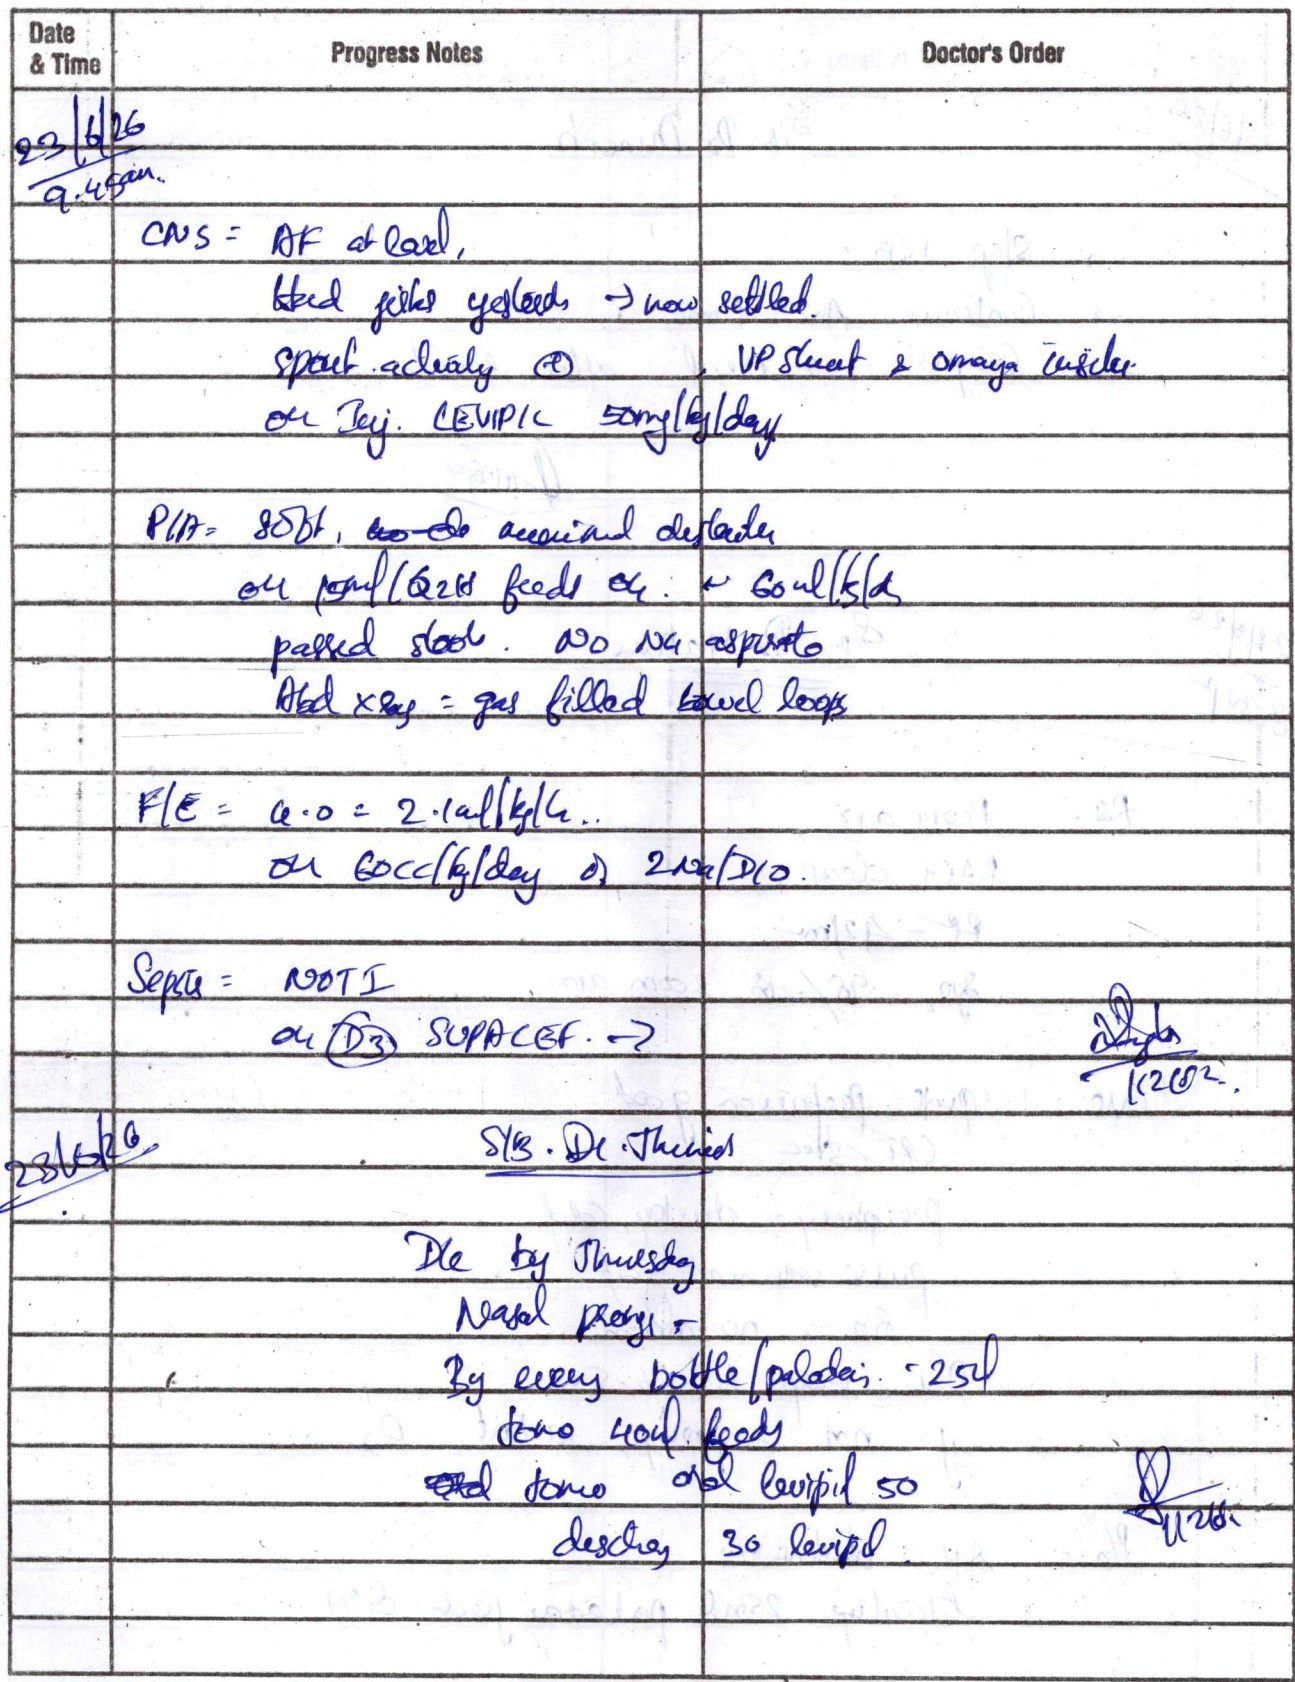 Date & Time Progress Notes Doctor's Order
23/6/26
9.45am.
CNS = AF at level,
Had jerks yesterday → now settled.
Spont. activity ⊕ , VP shunt & omaya insitu.
on Inj. LEVIPIL 50mg/kg/day
P/A = soft, minimal distention
on 15ml/Q2H feeds on. ~ 60ml/kg/d
passed stool. No NG aspirate
Abd xray = gas filled bowel loops
F/E = u.o = 2.1ml/kg/h..
on 60cc/kg/day of 2Na/D10.
Sepsis = NOTI
on D3 SUPACEF. →
23/6/26
S/B. Dr.
D/c by Thursday
Nasal prongs -
By every bottle/paladai - 25ml
tomo 40ml feeds
tomo oral levipil 50
discharg 30 levipil.